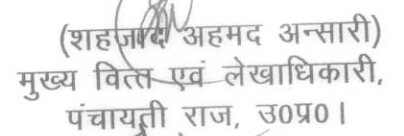 (शहजाद अहमद अन्सारी)
मुख्य वित्त एवं लेखाधिकारी,
पंचायती राज, उ०प्र०।